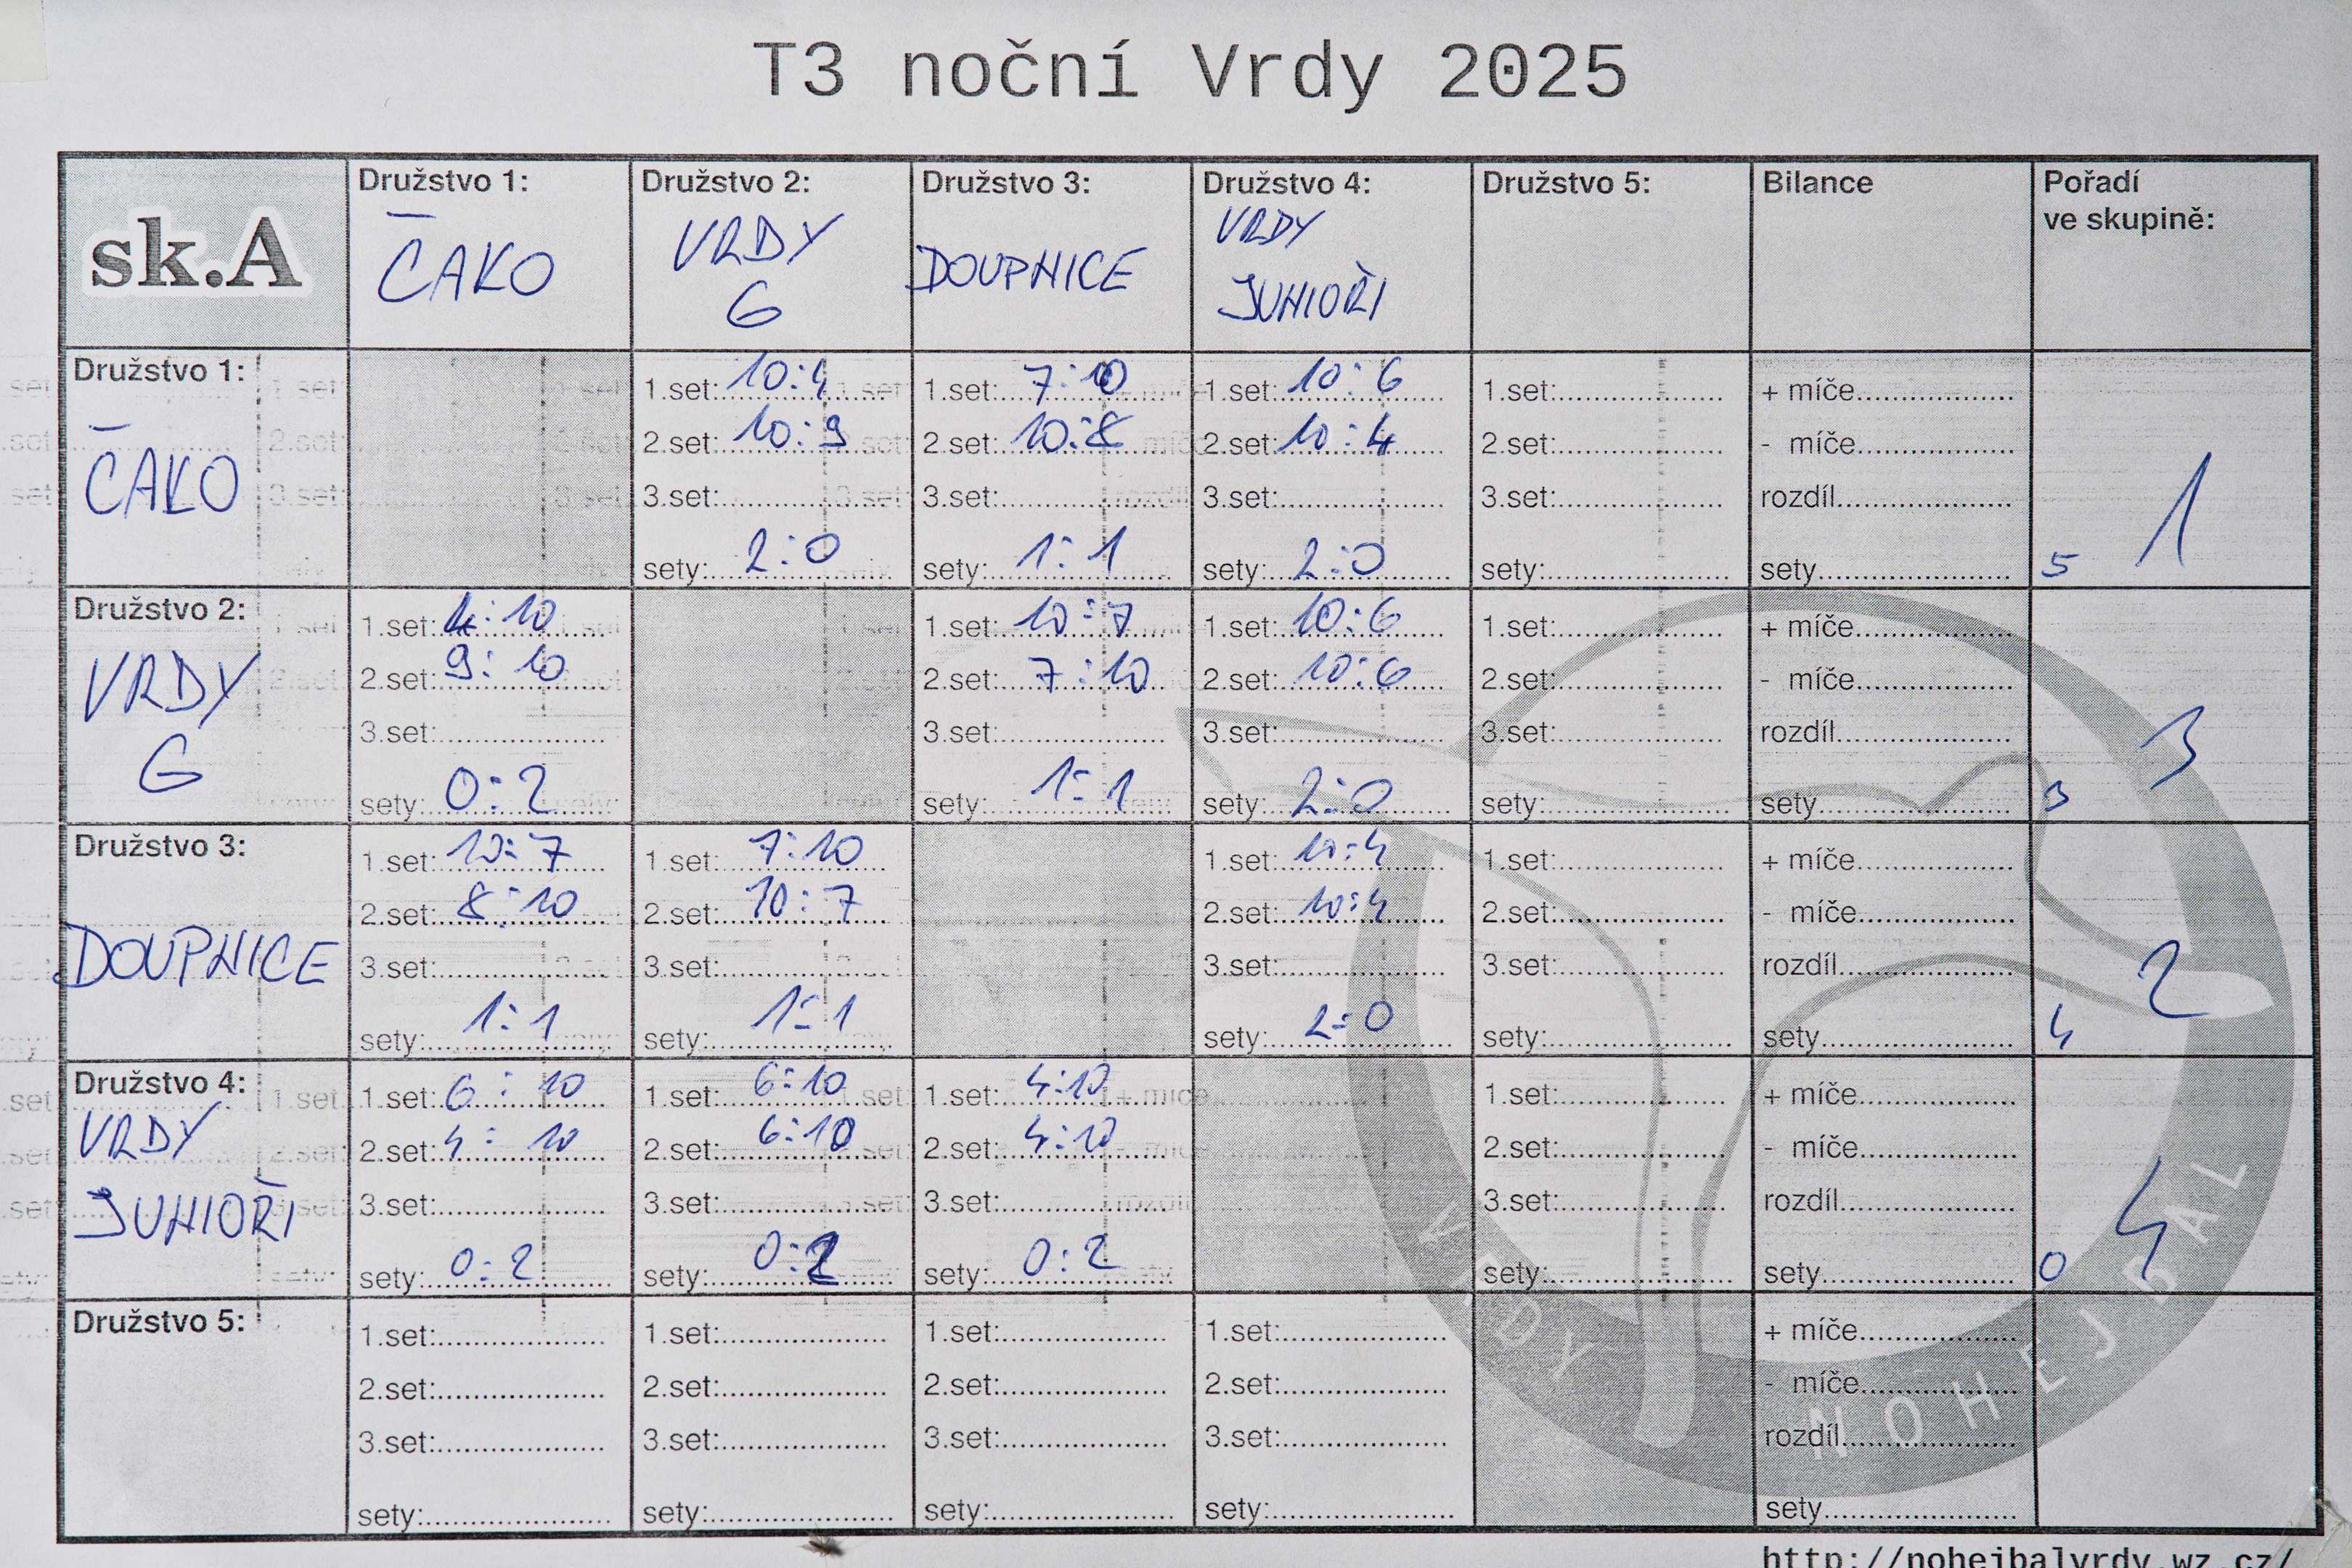 T3 noční Vrdy 2025
sk.A
Družstvo 1:
ČAKO
Družstvo 2:
VRDY
G
Družstvo 3:
DOUPNICE
Družstvo 4:
VRDY
JUNIOŘI
Družstvo 5:
Bilance
Pořadí
ve skupině:
Družstvo 1:
ČAKO
1.set: 10:4
2.set: 10:9
3.set:
sety: 2:0
1.set: 7:10
2.set: 10:8
3.set:
sety: 1:1
1.set: 10:6
2.set: 10:4
3.set:
sety: 2:0
1.set:
2.set:
3.set:
sety:
+ míče
- míče
rozdíl
sety
5
1
Družstvo 2:
VRDY
G
1.set: 4:10
2.set: 9:10
3.set:
sety: 0:2
1.set: 10:7
2.set: 7:10
3.set:
sety: 1:1
1.set: 10:6
2.set: 10:6
3.set:
sety: 2:0
1.set:
2.set:
3.set:
sety:
+ míče
- míče
rozdíl
sety
3
3
Družstvo 3:
DOUPNICE
1.set: 10:7
2.set: 8:10
3.set:
sety: 1:1
1.set: 7:10
2.set: 10:7
3.set:
sety: 1:1
1.set: 10:4
2.set: 10:4
3.set:
sety: 2:0
1.set:
2.set:
3.set:
sety:
+ míče
- míče
rozdíl
sety
4
2
Družstvo 4:
VRDY
JUNIOŘI
1.set: 6:10
2.set: 4:10
3.set:
sety: 0:2
1.set: 6:10
2.set: 6:10
3.set:
sety: 0:2
1.set: 4:10
2.set: 4:10
3.set:
sety: 0:2
1.set:
2.set:
3.set:
sety:
+ míče
- míče
rozdíl
sety
0
4
Družstvo 5:
1.set:
2.set:
3.set:
sety:
1.set:
2.set:
3.set:
sety:
1.set:
2.set:
3.set:
sety:
1.set:
2.set:
3.set:
sety:
+ míče
- míče
rozdíl
sety
VRDY NOHEJBAL
http://nohejbalvrdy.wz.cz/